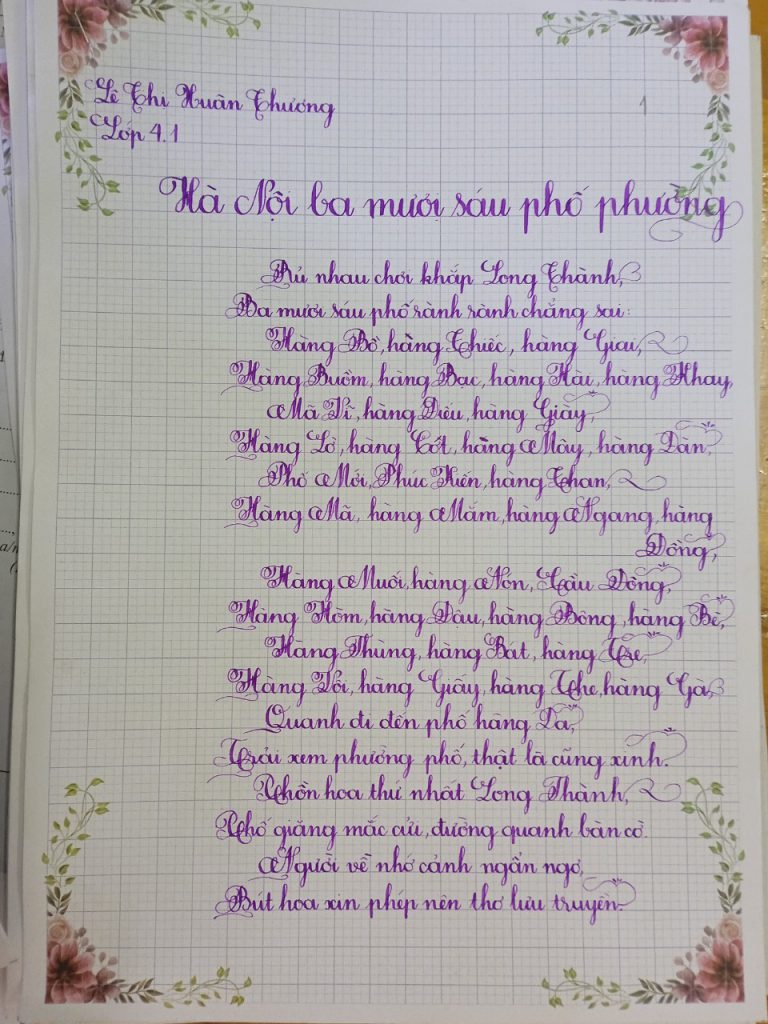 Lê Thị Xuân Thương
1
Lớp 4.1
Hà Nội ba mươi sáu phố phường
Rủ nhau chơi khắp Long Thành,
Ba mươi sáu phố rành rành chẳng sai:
Hàng Bồ, hàng Thiếc, hàng Giai,
Hàng Buồm, hàng Bạc, hàng Hài, hàng Khay,
Mã Vĩ, hàng Điếu, hàng Giày,
Hàng Lờ, hàng Cót, hàng Mây, hàng Đàn,
Phố Mới, Phúc Kiến, hàng Than,
Hàng Mã, hàng Mắm, hàng Ngang, hàng
Đồng,
Hàng Muối, hàng Nón, Cầu Đông,
Hàng Hòm, hàng Đậu, hàng Bông, hàng Bè,
Hàng Thùng, hàng Bát, hàng Tre,
Hàng Vôi, hàng Giấy, hàng The, hàng Gà,
Quanh đi đến phố hàng Da,
Trải xem phường phố, thật là cũng xinh.
Phồn hoa thứ nhất Long Thành,
Phố giăng mắc cửi, đường quanh bàn cờ.
Người về nhớ cảnh ngẩn ngơ,
Bút hoa xin phép nên thơ lưu truyền.